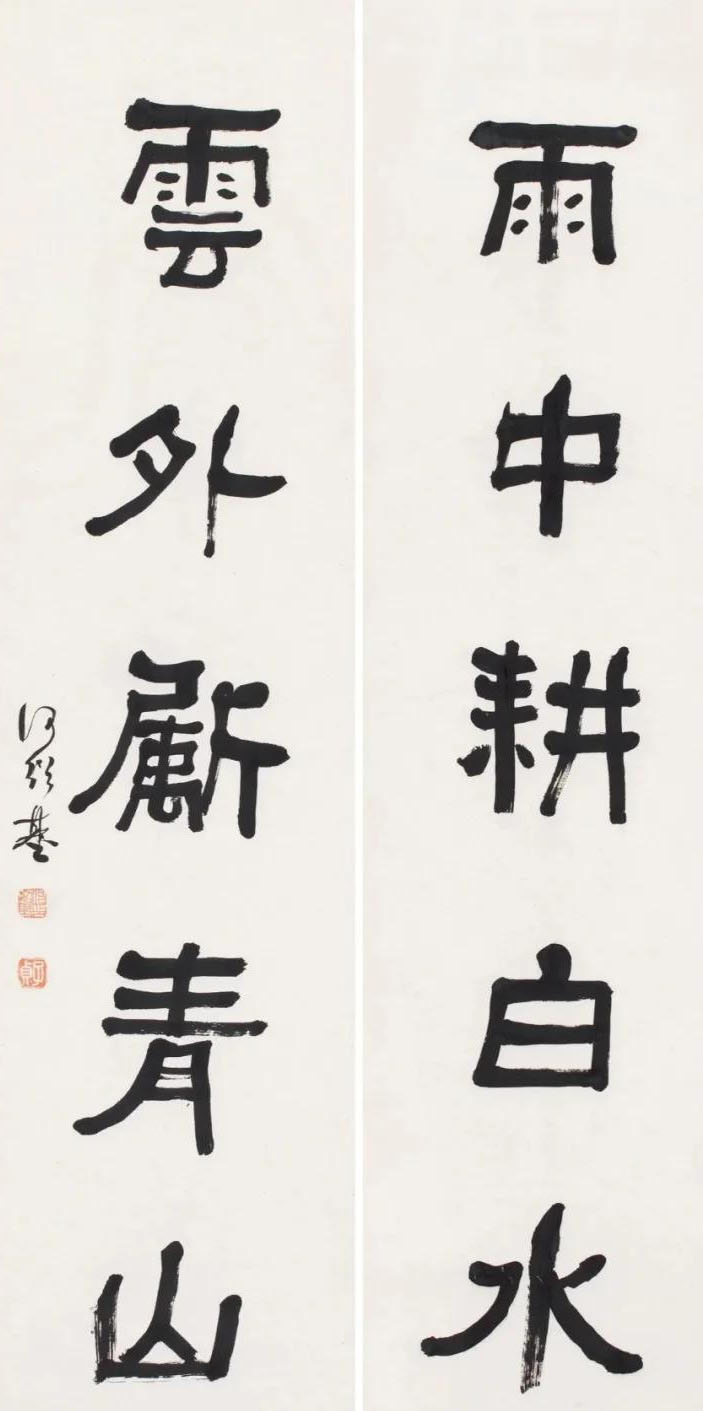 雨中耕白水
雲外斸青山
何紹基
子貞